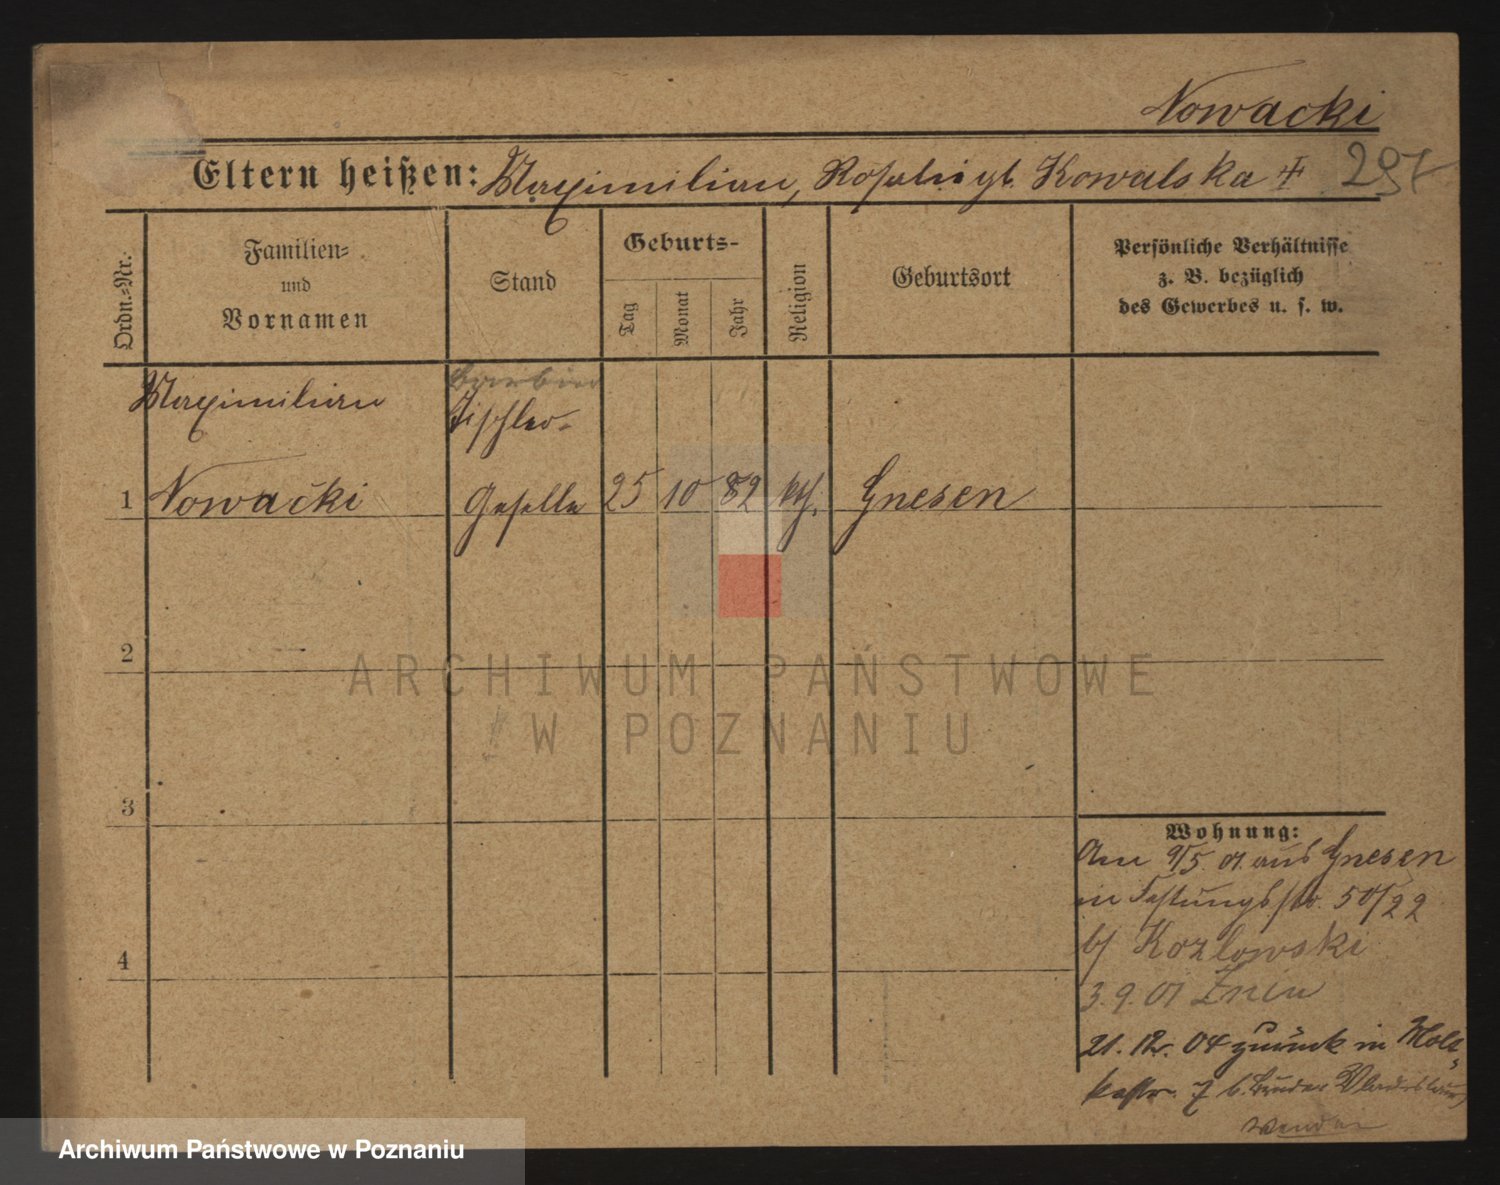 Nowacki
Eltern heißen: Maximilian, Rosalia gb. Kowalska ‡ 297
Ordn.=Nr.
Familien= und Vornamen
Stand
Geburts-
Tag
Monat
Jahr
Religion
Geburtsort
Persönliche Verhältnisse
z. B. bezüglich
des Gewerbes u. s. w.
Maximilian
Barbier
Tischler-
1 Nowacki Geselle 25 10 82 kth. Gnesen
2
3
4
Wohnung:
Am 9/5. 01. aus Gnesen
in Festungsstr. 50/22
b/ Kozlowski
3.9.01 Znin
21. 12. 04 zurück in
7 b. Bruder Wladislaus
wenden
ARCHIWUM PAŃSTWOWE
W POZNANIU
Archiwum Państwowe w Poznaniu